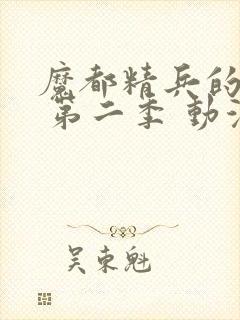 魔都精兵的
第二季 動漫
吴東魁